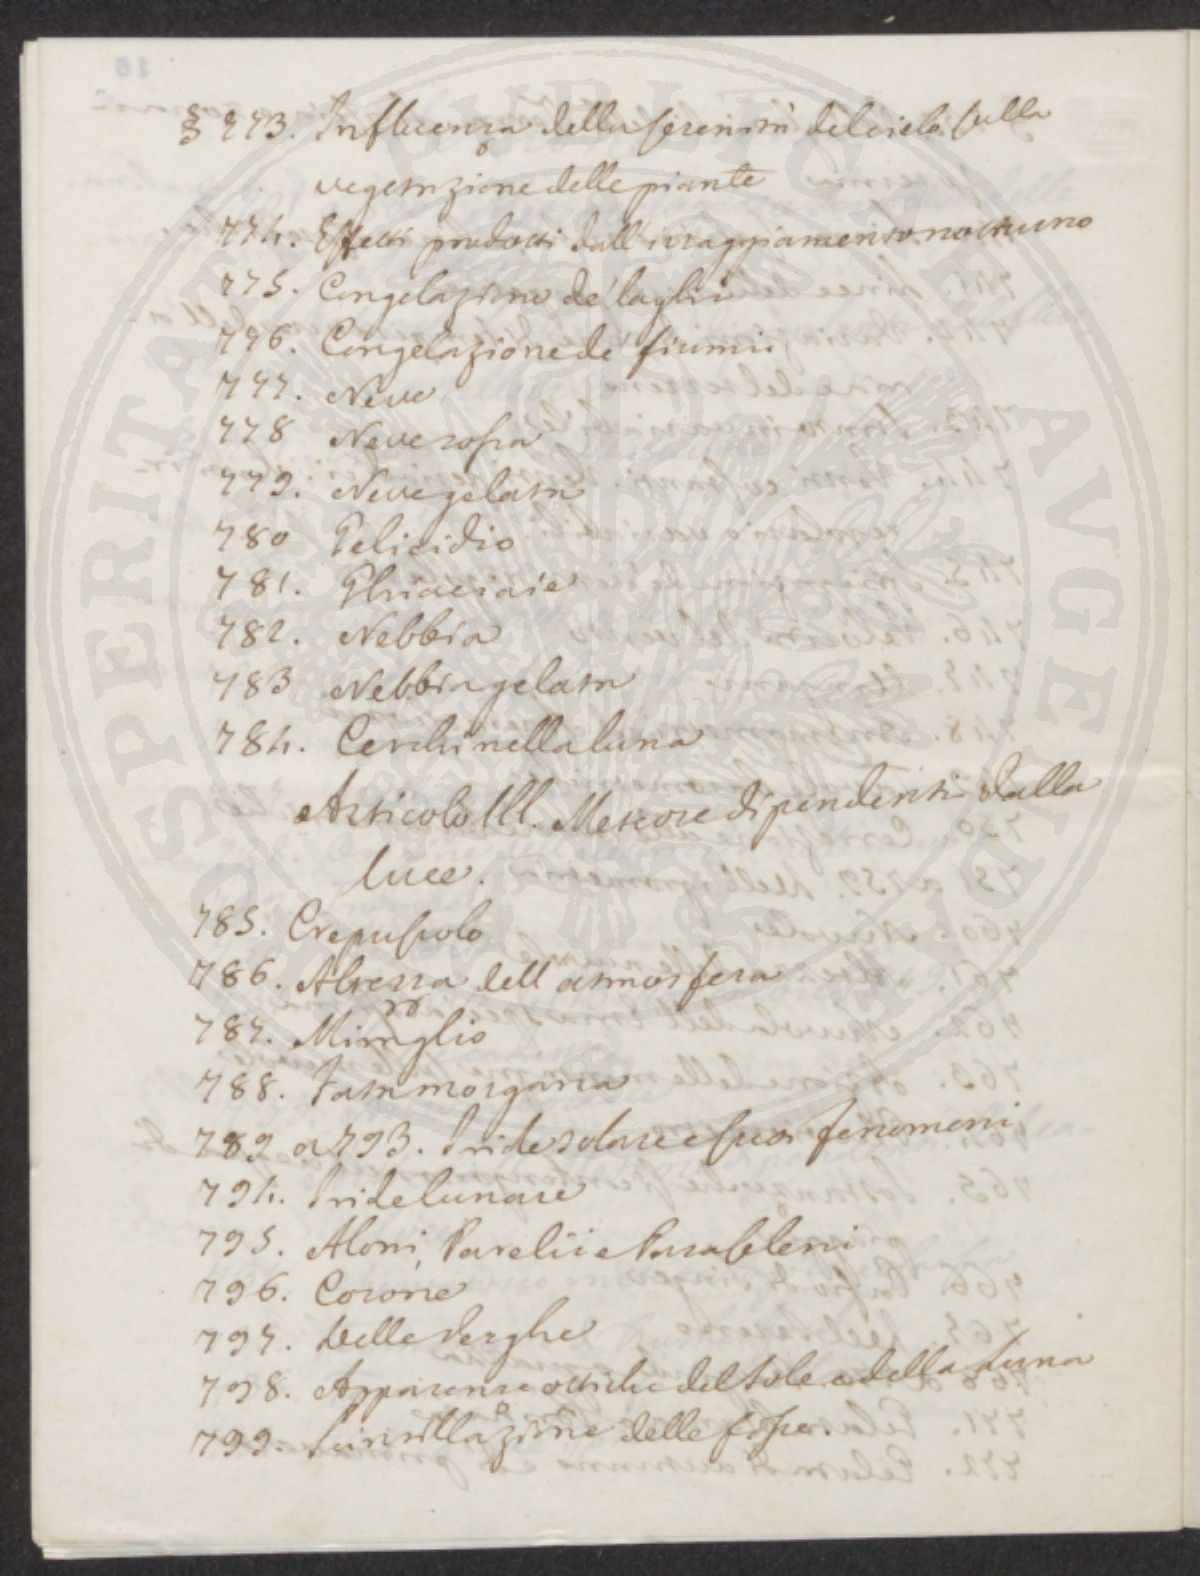 § 773. Influenza della serenità del cielo sulla
vegetazione delle piante
774. Effetti prodotti dall'irraggiamento notturno
775. Congelazione de' laghi
776. Congelazione de' fiumi
777. Neve
778 Neve rossa
779. Neve gelata
780 Gelicidio
781. Ghiacciaie
782. Nebbia
783 Nebbia gelata
784. Cerchi nella luna
Articolo III. Meteore dipendenti dalla
luce.
785. Crepuscolo
786. Altezza dell'atmosfera
787. Miraglio
788. Fatamorgana
789 a 793. Iride solare e suoi fenomeni
794. Iride lunare
795. Aloni, Parelii e Parasleni
796. Corone
797. Delle Verghe
798. Apparenze ottiche del Sole e della Luna
799. Scintillazione delle fisse.
PROSPERITATI PVBLICAE AVGENDAE